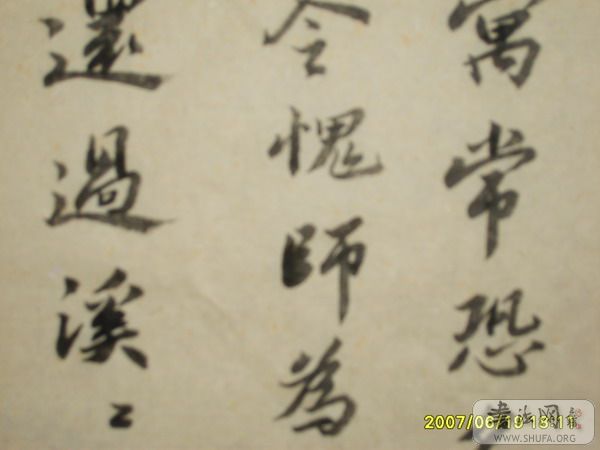 寓常恐
令愧師為
還過溪〻
2007/06/19 13:11
WWW.SHUFA.ORG